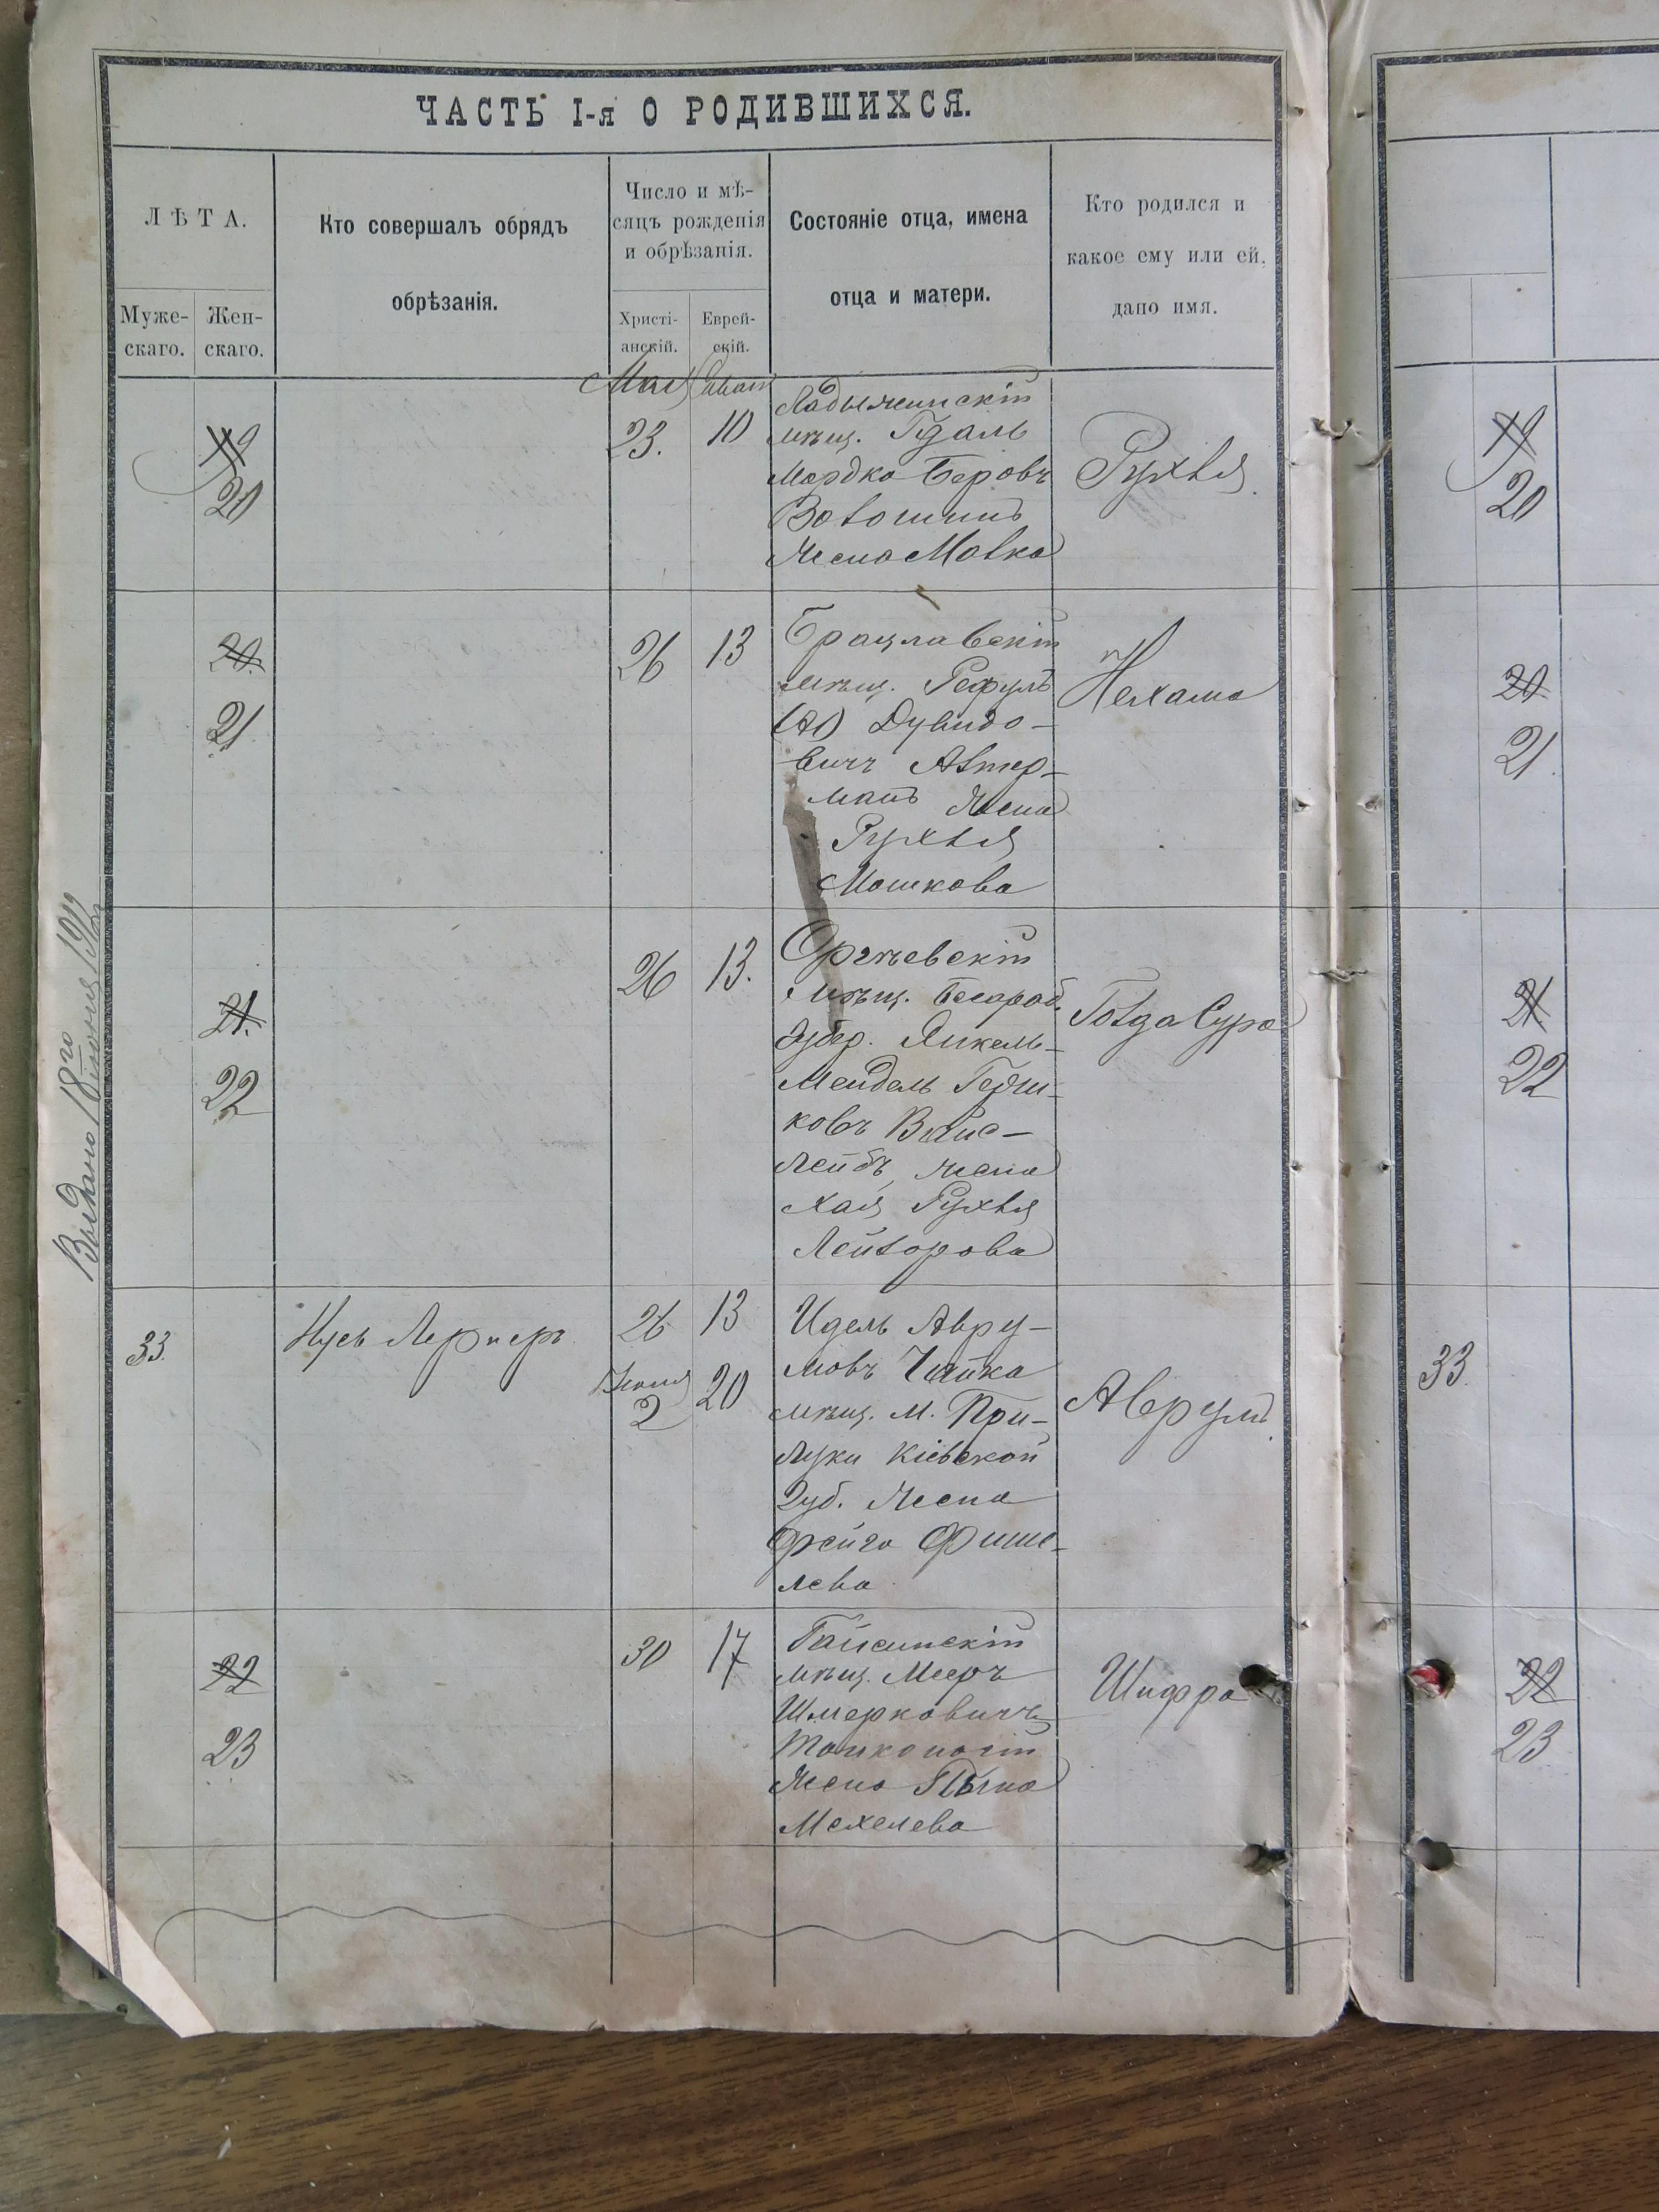 ЧАСТЬ I-я О РОДИВШИХСЯ.
ЛѢТА.
Муже-
скаго.
Жен-
скаго.
Кто совершалъ обрядъ
обрѣзанія.
Число и мѣ-
сяцъ рожденія
и обрѣзанія.
Христі-
анскій.
Еврей-
скій.
Состояніе отца, имена
отца и матери.
Кто родился и
какое ему или ей,
дано имя.
Мая Сиванъ
19
20
23. 10
Ладыжинскій
мѣщ. Гдаль
Мордко Беровъ
Волошинъ
Жена Малка
Рухля
19
20
20.
21
26 13
Брацлавскій
мѣщ.
Дувидо-
вичъ Алтер-
манъ Жена
Рухля
Мошкова
Нехама
20
21.
21.
22
26 13.
Оргѣевскій
мѣщ. Бесараб.
Губер. Янкель-
Мендель
ковъ Вайс-
лейбъ, жена
Хая Рухля
Лейзорова
Голда Сура
21.
22
33.
Нусь Лернеръ
26 13
Іюня
2 20
Идель Авру-
мовъ Чайка
мѣщ. м. При-
луки Кіевской
Губ. Жена
Фейга Фише-
лева
Аврумъ
33.
22
23
30 17
Гайсинскій
мѣщ. Мееръ
Шмерковичъ
Тонконогій
Жена
Мехелева
Шифра
22
23
Выдано 18го іюня 1912